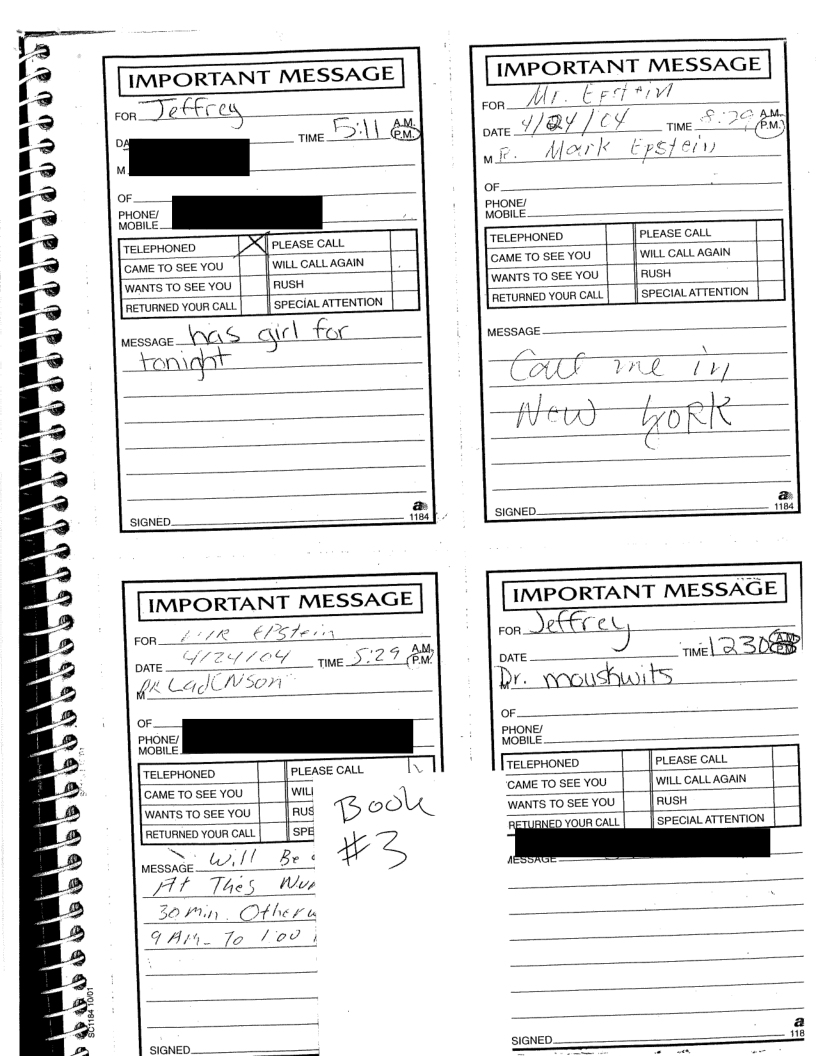 IMPORTANT MESSAGE
FOR Jeffrey
TIME 5:11 A.M. P.M.
M.
OF
PHONE/
MOBILE
TELEPHONED X PLEASE CALL
CAME TO SEE YOU WILL CALL AGAIN
WANTS TO SEE YOU RUSH
RETURNED YOUR CALL SPECIAL ATTENTION
MESSAGE has girl for
tonight
SIGNED
a
1184
IMPORTANT MESSAGE
FOR Mr. Epstein
DATE 4/24/04 TIME 8:29 A.M. P.M.
M R. Mark Epstein
OF
PHONE/
MOBILE
TELEPHONED PLEASE CALL
CAME TO SEE YOU WILL CALL AGAIN
WANTS TO SEE YOU RUSH
RETURNED YOUR CALL SPECIAL ATTENTION
MESSAGE
Call me in
New York
SIGNED
a
1184
IMPORTANT MESSAGE
FOR MR EPStein
DATE 4/24/04 TIME 5:29 A.M. P.M.
M DR
OF
PHONE/
MOBILE
TELEPHONED PLEASE CALL
CAME TO SEE YOU WIL
WANTS TO SEE YOU RUS
RETURNED YOUR CALL SPE
MESSAGE Will Be
At Thes Num
30 min. Otherw
9 AM - To 1:00
SIGNED
Book
#3
SC1184 10/01
IMPORTANT MESSAGE
FOR Jeffrey
DATE TIME 1230 A.M. P.M.
M Dr. moushwits
OF
PHONE/
MOBILE
TELEPHONED PLEASE CALL
CAME TO SEE YOU WILL CALL AGAIN
WANTS TO SEE YOU RUSH
RETURNED YOUR CALL SPECIAL ATTENTION
MESSAGE
SIGNED
a
118